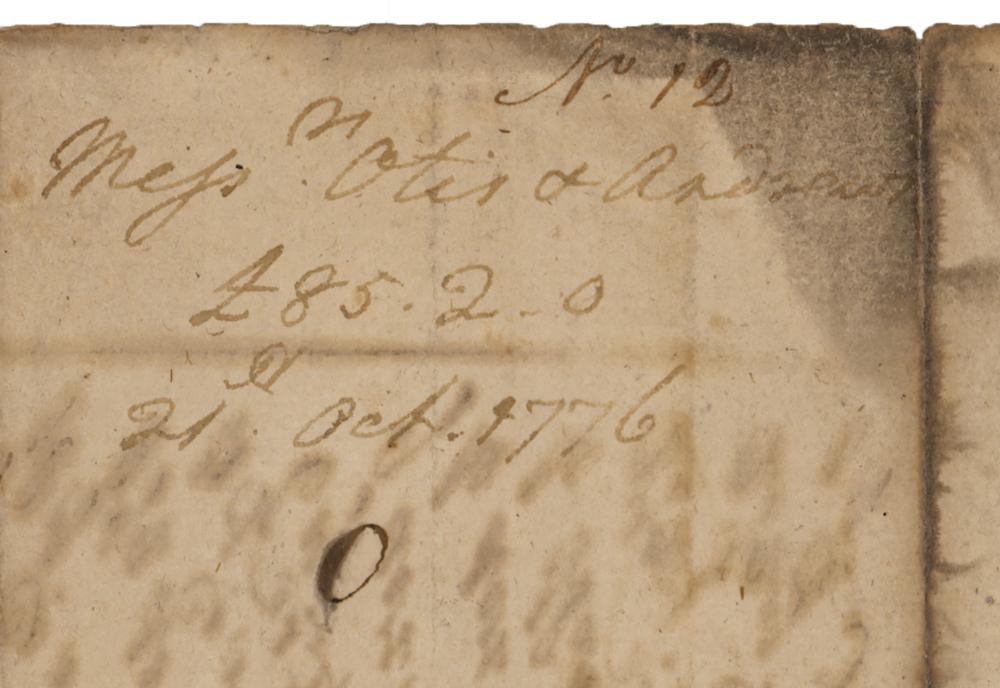 No. 12
Messrs. Otis & Andrews
£85.2.0
21st. Oct. 1776
0